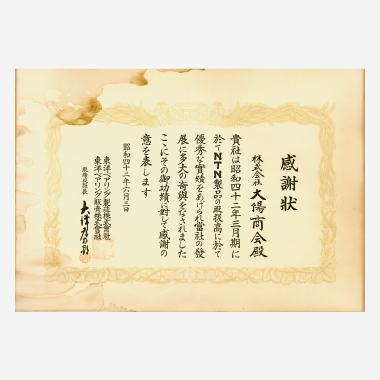 感謝状
株式会社 大陽商会殿
貴社は昭和四十二年三月期に
於てNTN製品の販拡高に於て
優秀な實績をあげられ當社の發
展に多大の寄與をなされました
ここにその御功績に対して感謝の
意を表します
昭和四十二年六月三日
東洋ベアリング製造株式会社
東洋ベアリング販売株式会社
取締役社長